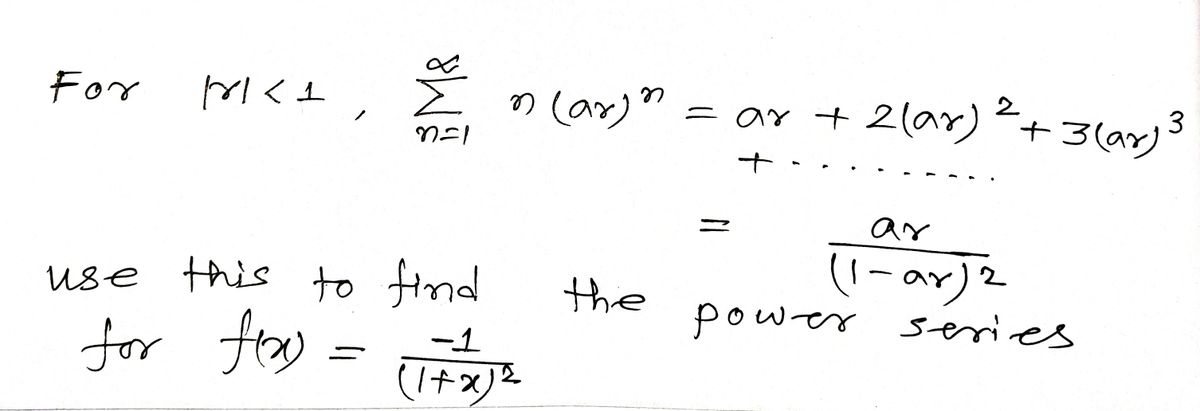 For |r| < 1, ∞∑n=1 n(ar)ⁿ = ar + 2(ar)² + 3(ar)³
+ ..........
= ar/(1-ar)²
use this to find the power series
for f(x) = -1/(1+x)²